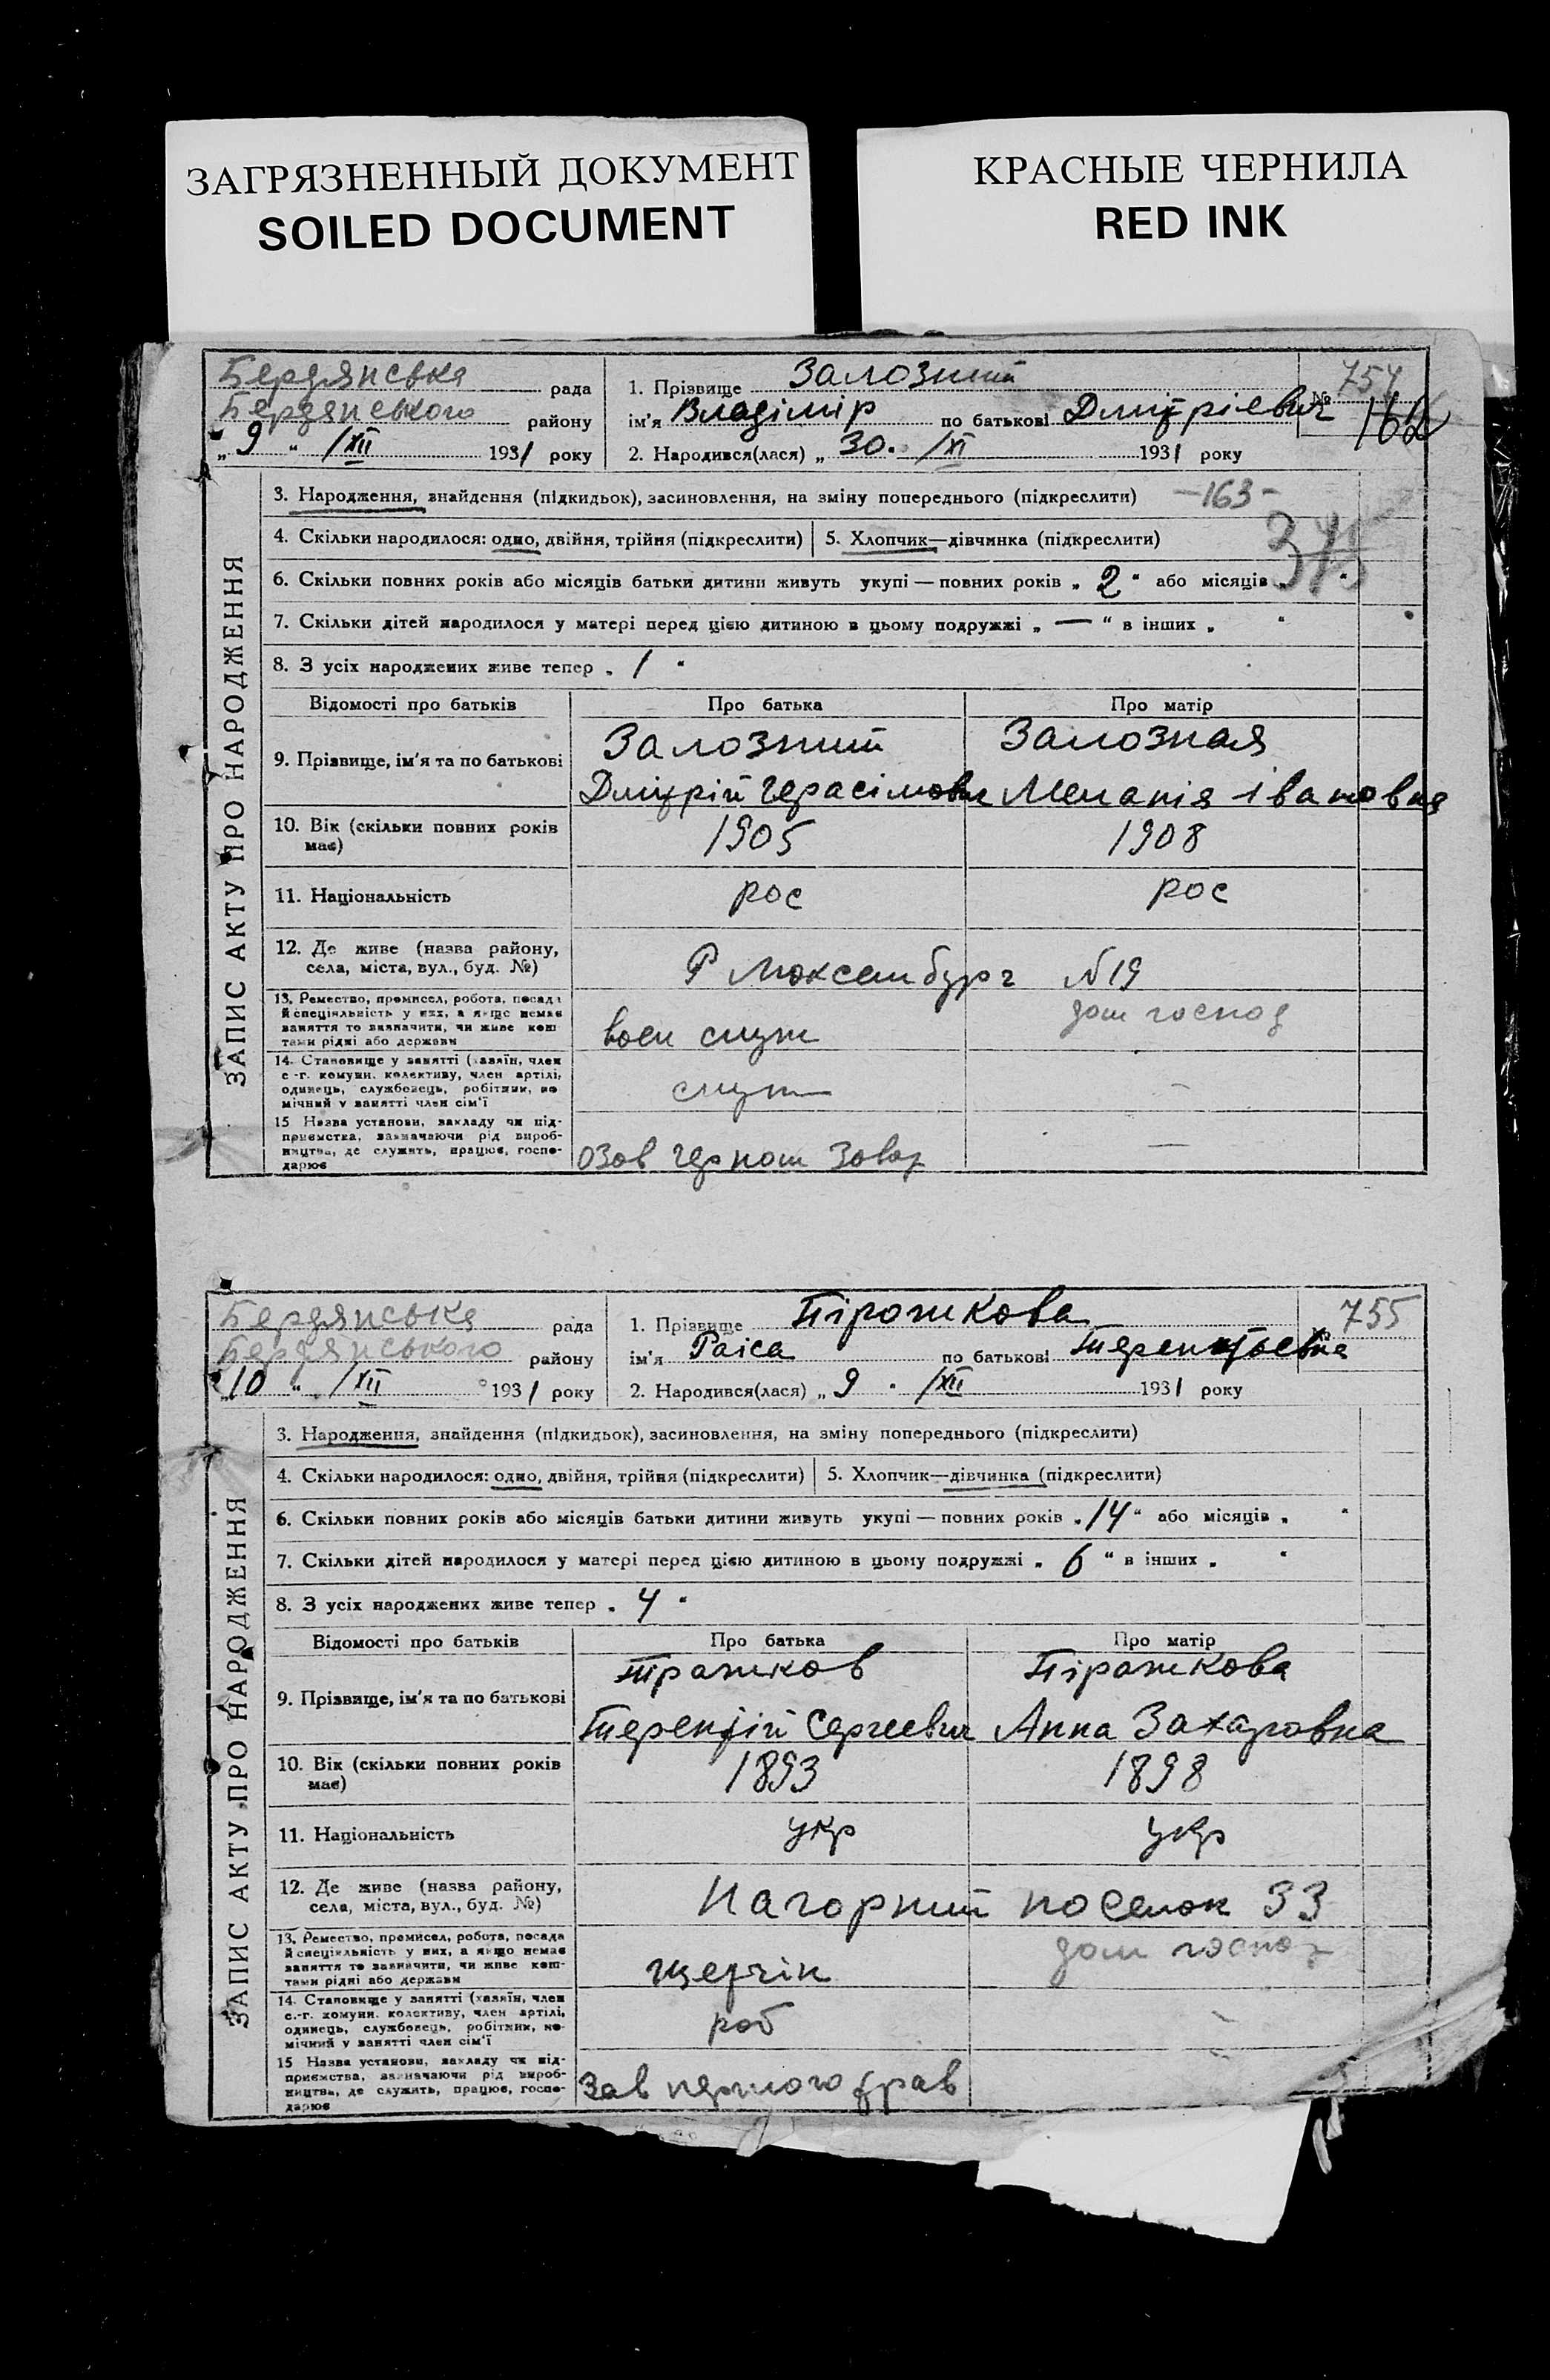 ЗАГРЯЗНЕННЫЙ ДОКУМЕНТ
SOILED DOCUMENT
КРАСНЫЕ ЧЕРНИЛА
RED INK
Бердянська рада
Бердянського району
„ 9 “ /XII 1931 року
1. Прізвище Залозний
ім'я Владімір по батькові Дмітріевич
2. Народився(лася) „ 30. /XI 1931 року
№ 754
162
ЗАПИС АКТУ ПРО НАРОДЖЕННЯ
3. Народження, знайдення (підкидьок), засиновлення, на зміну попереднього (підкреслити) -163-
4. Скільки народилося: одно, двійня, трійня (підкреслити) 5. Хлопчик—дівчинка (підкреслити)
6. Скільки повних років або місяців батьки дитини живуть укупі — повних років „ 2 “ або місяців „ “
7. Скільки дітей народилося у матері перед цією дитиною в цьому подружжі „ — “ в інших „ “
8. З усіх народжених живе тепер „ 1 “
Відомості про батьків Про батька Про матір
9. Прізвище, ім'я та по батькові
Залозний
Дмітрій Герасімович
Залозная
Меланія Івановна
10. Вік (скільки повних років має) 1905 1908
11. Національність рос рос
12. Де живе (назва району,
села, міста, вул., буд. №)
Р Люксембург N 19
13. Ремество, промисел, робота, посада
й спеціяльність у них, а якщо немає
заняття то зазначити, чи живе кош-
тами рідні або держави
воен служ
дом господ
14. Становище у занятті (хазяїн, член
с.-г. комуни, колективу, член артілі,
одинець, службовець, робітник, по
мічний у занятті член сім'ї
служ
—
15 Назва установи, закладу чи під-
приємства, зазначаючи рід вироб-
ництва, де служить, працює, госпо-
дарює
—
Бердянська рада
Бердянського району
„ 10 “ /XII 1931 року
1. Прізвище Пірожкова
ім'я Раіса по батькові Терентьевна
2. Народився(лася) „ 9 “ /XII 1931 року
№ 755
ЗАПИС АКТУ ПРО НАРОДЖЕННЯ
3. Народження, знайдення (підкидьок), засиновлення, на зміну попереднього (підкреслити)
4. Скільки народилося: одно, двійня, трійня (підкреслити) 5. Хлопчик—дівчинка (підкреслити)
6. Скільки повних років або місяців батьки дитини живуть укупі — повних років „ 14 “ або місяців „ “
7. Скільки дітей народилося у матері перед цією дитиною в цьому подружжі „ 6 “ в інших „ “
8. З усіх народжених живе тепер „ 4 “
Відомості про батьків Про батька Про матір
9. Прізвище, ім'я та по батькові
Терентій Сергеевич
Пірожкова
Анна Захаровна
10. Вік (скільки повних років має) 1893 1898
11. Національність укр укр
12. Де живе (назва району,
села, міста, вул., буд. №)
Нагорний поселок 33
13. Ремество, промисел, робота, посада
й спеціяльність у них, а якщо немає
заняття то зазначити, чи живе кош-
тами рідні або держави
дом господ
14. Становище у занятті (хазяїн, член
с.-г. комуни, колективу, член артілі,
одинець, службовець, робітник, по-
мічний у занятті член сім'ї
роб
15 Назва установи, закладу чи під-
приємства, зазначаючи рід вироб-
ництва, де служить, працює, госпо-
дарює
Зав першого трав